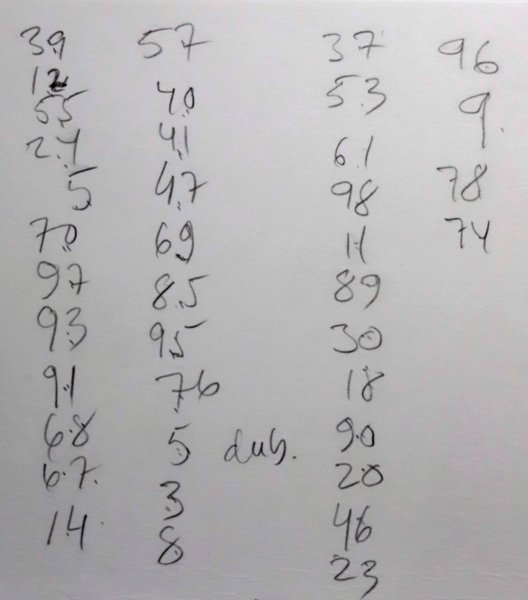 39
12
55
24
5
70
97
93
91
68
67
14
57
40
41
47
69
85
95
76
5 dub.
3
8
37
53
61
98
11
89
30
18
90
20
46
23
96
9
78
74